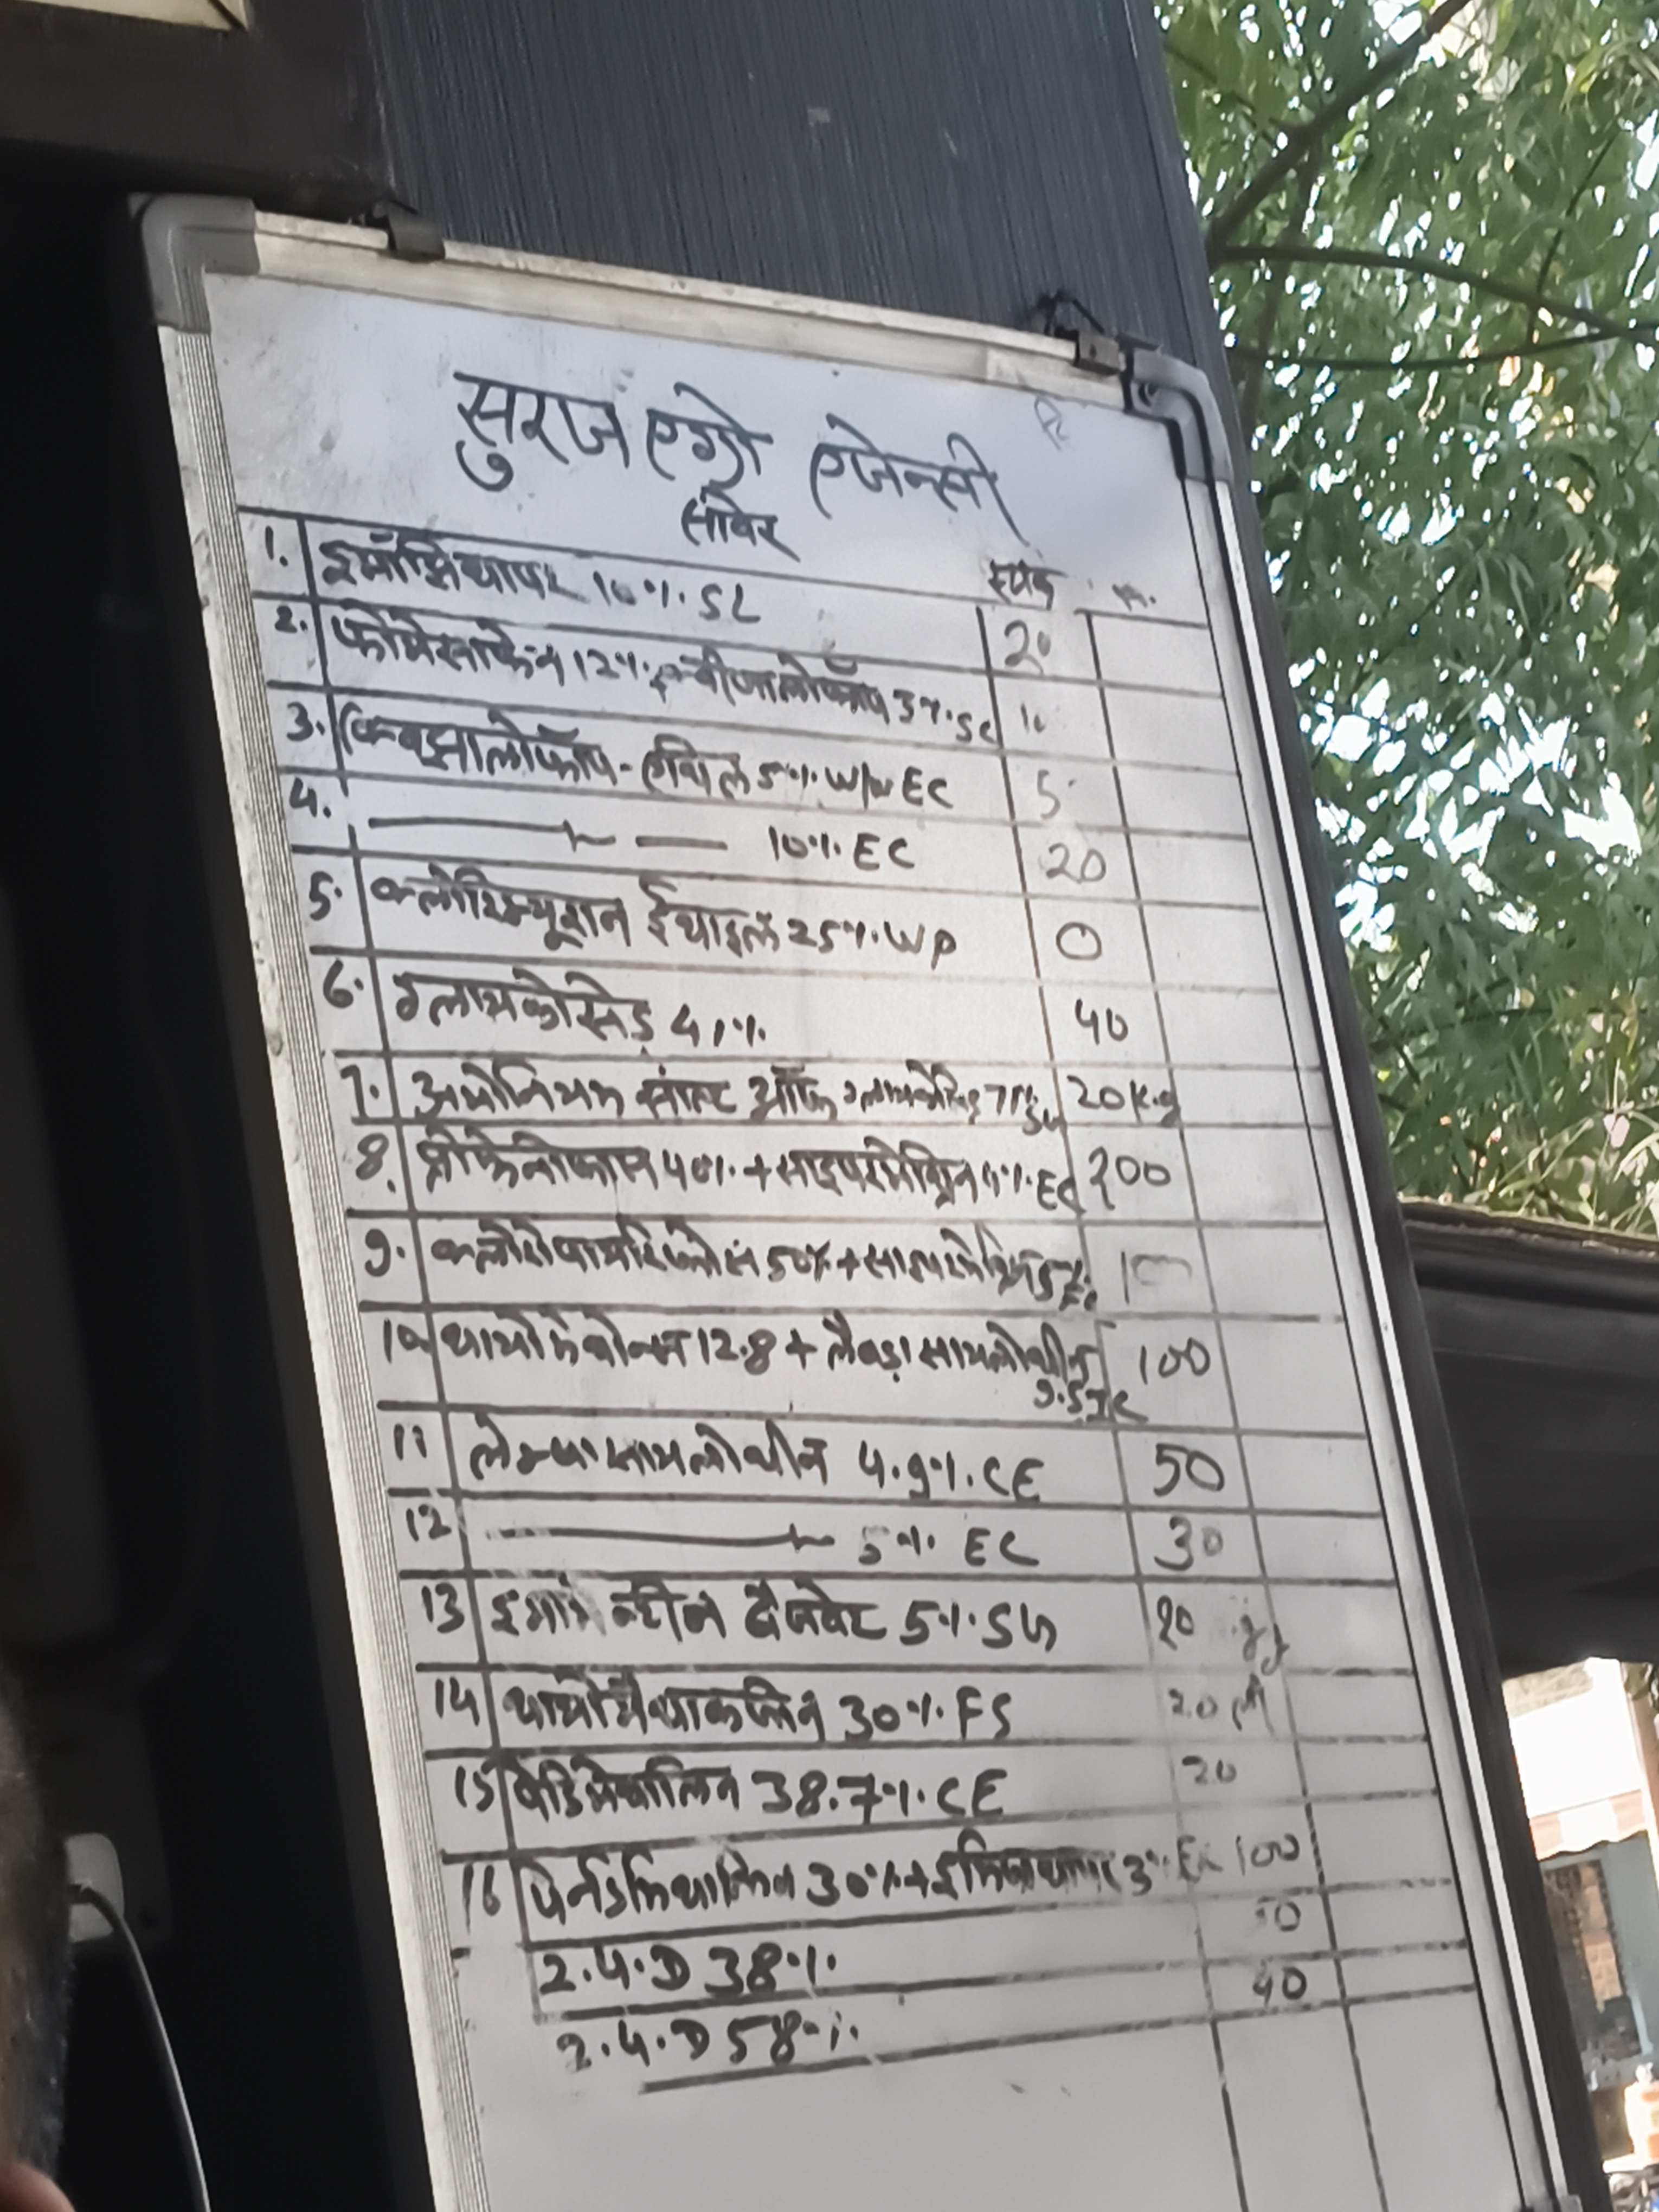 सुराज एग्रो एजेन्सी
सांवेर
1. इमॉझिथापर 10%. SL 20
2. फोमेसाफेन 12%+क्वीजालोफॉप 3%.SC 10
3. क्विझालोफॉप-एथिल 5%. W/W EC 5
4. 10%. EC 20
5. क्लोरिम्यूरान ईथाइल 25%. WP 0
6. ग्लायकोसेड़ 41%. 40
7. अमोनियम साल्ट ऑफ 71% SG 20 Kg
8. प्रोफेनोफास 40%.+साइपरमेथ्रिन 4%.EC 200
9. क्लोरोपायरिफोस 50%+ 5%. EC
10 थायोमेथोक्स 12.8 + लैबड़ा सायलोथ्रीन 9.5 ZC 100
11 लेम्डा सायलोथ्रीन 4.9%. CE 50
12 5%. EC 30
13 बेंजवेट 5%. SG 20
14 थायोमैथाक्जीन 30%. FS 20
15 पेंडिमेथालिन 38.7%. CE 20
16 पेनडिमिथालिन 30%+इमिजाथापर 3% EC 100
2.4.D 38%. 50
2.4.D 58%. 40